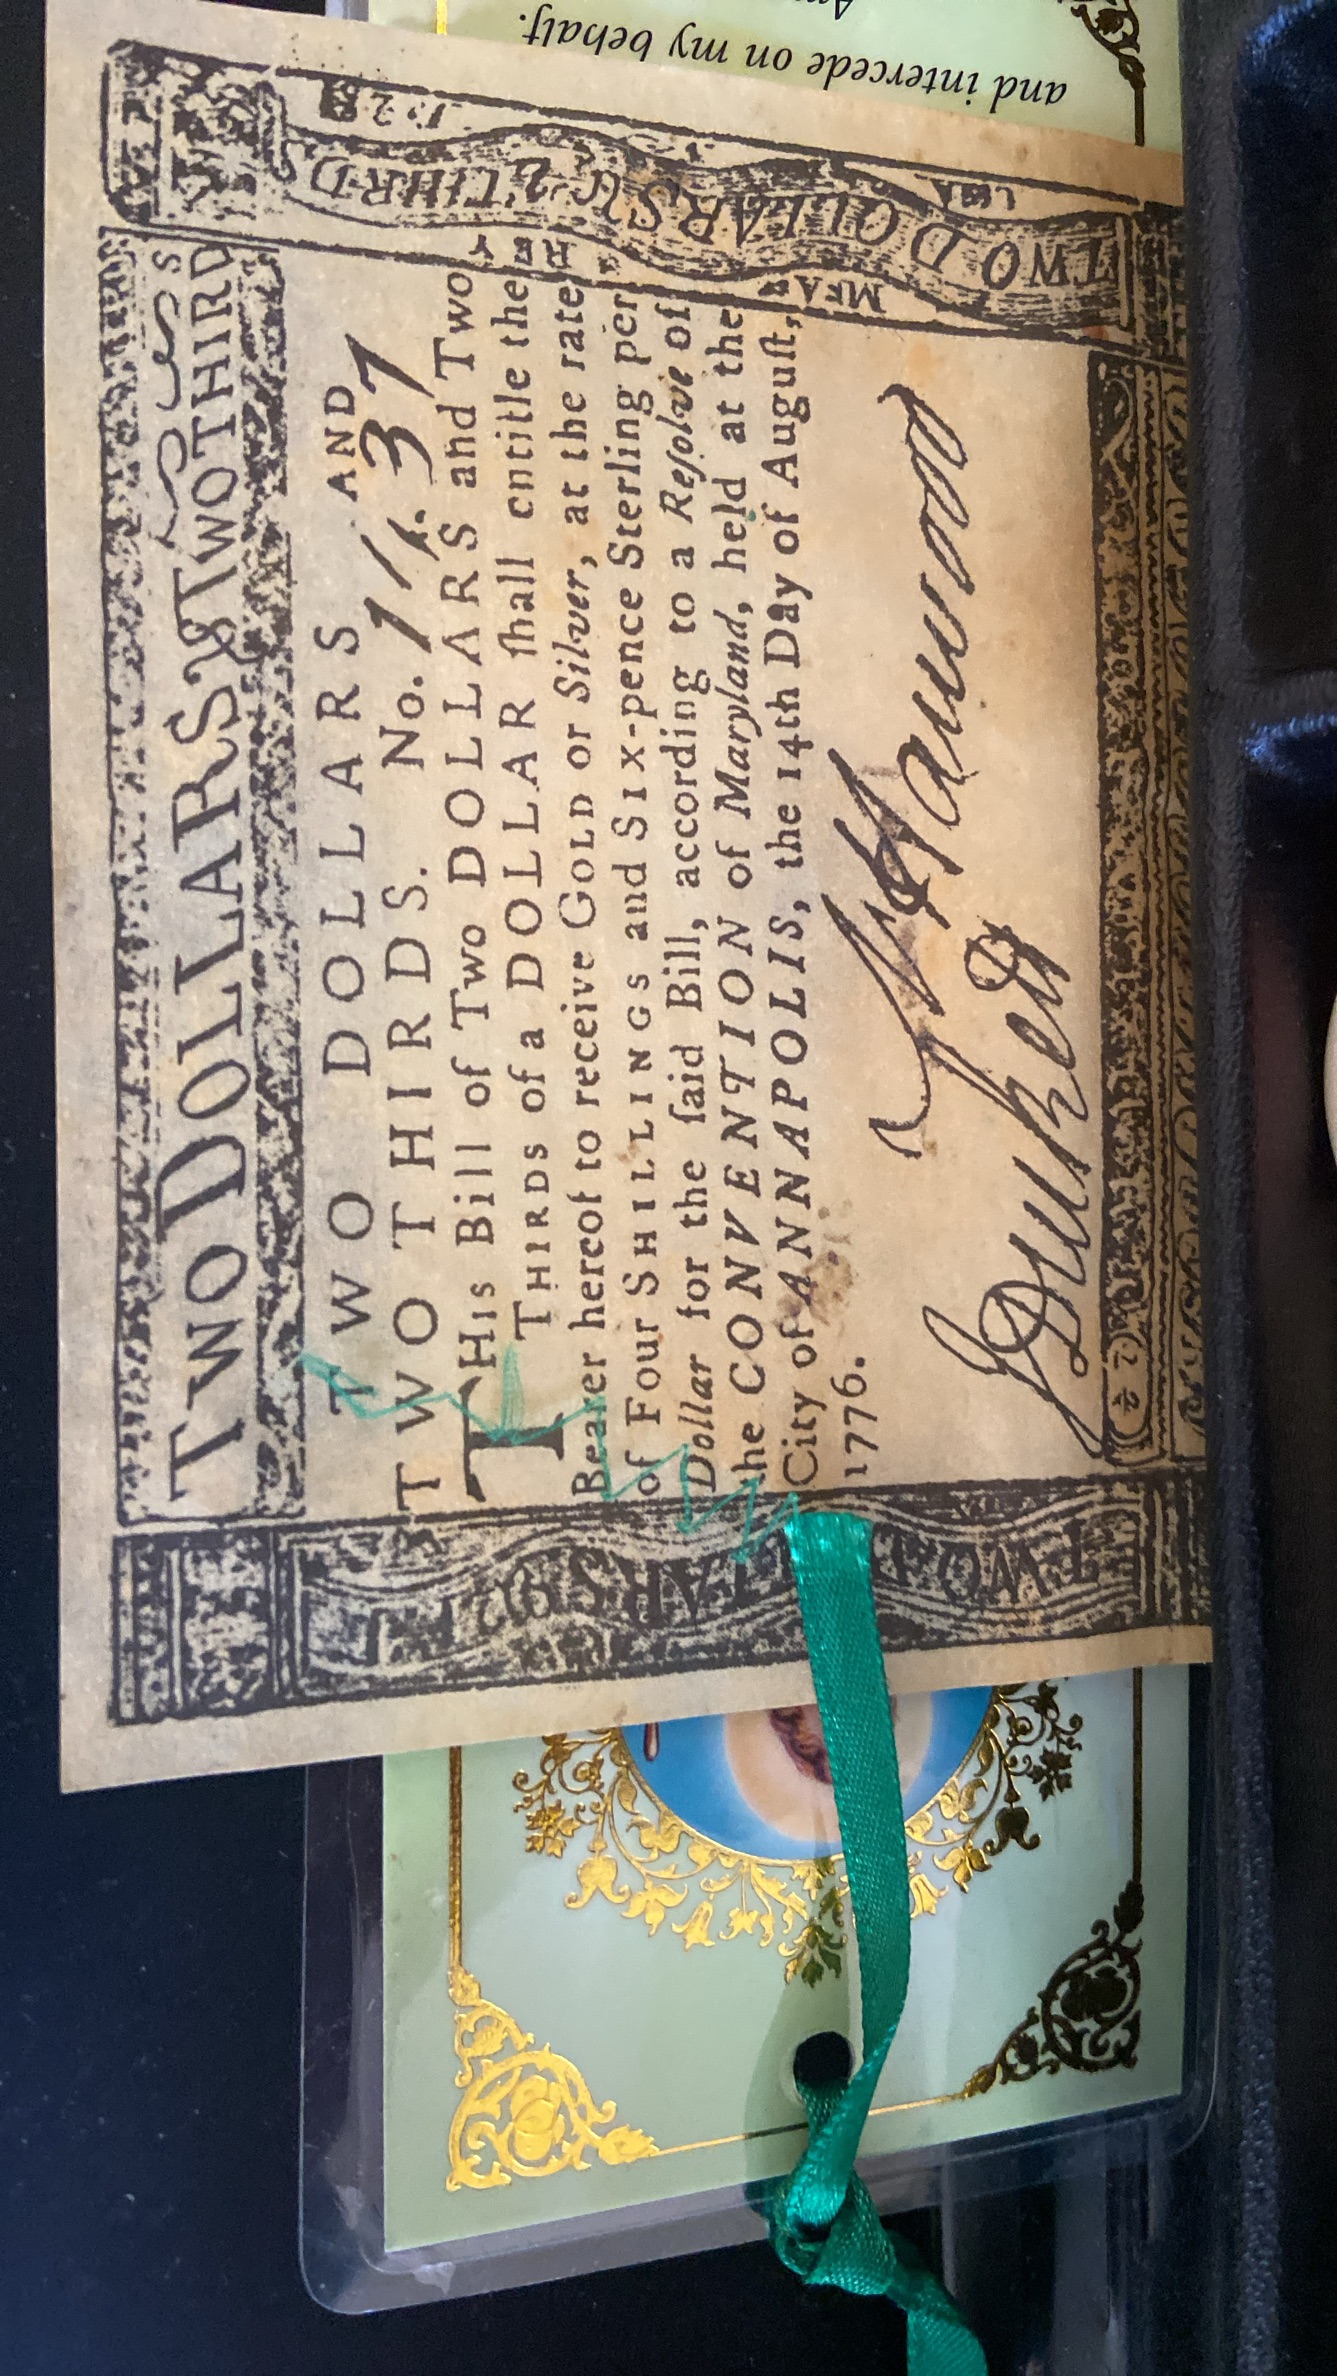 TWO DOLLARS & TWO THIRD
TWO DOLLARS AND
TWO THIRDS. No.
THIS Bill of TWO DOLLARS and TWO
THIRDS of a DOLLAR ſhall entitle the
Bearer hereof to receive GOLD or Silver, at the rate
of FOUR SHILLINGS and SIX-pence Sterling per
Dollar for the ſaid Bill, according to a Reſolve of
the CONVENTION of Maryland, held at the
City of ANNAPOLIS, the 14th Day of Auguſt,
1776.
N Harwood
JDuckett
TWO DOLLARS & 2 THIRD
TWO DOLLARS & 2 T
and intercede on my behalf.